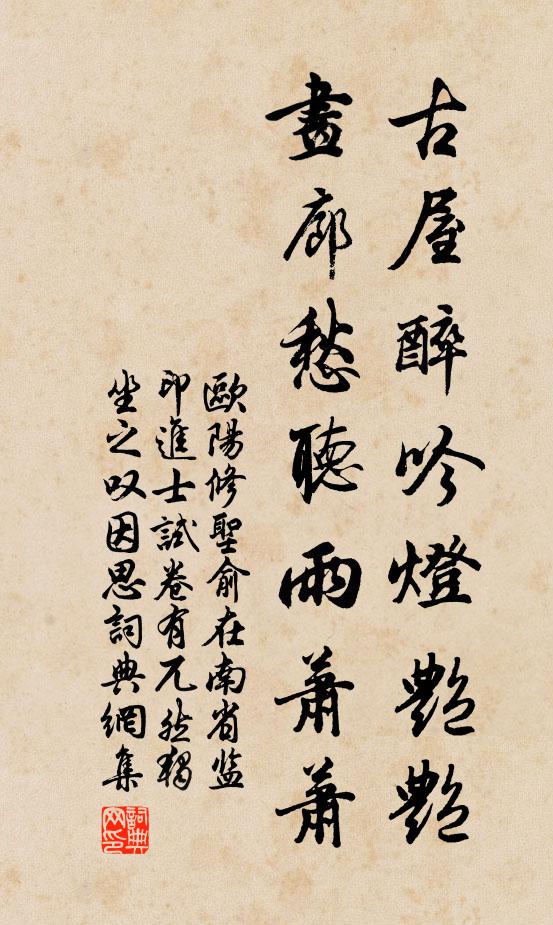 古屋醉吟燈艷艷
畫廊愁聽雨蕭蕭
歐陽修聖俞在南省监
印進士試卷有兀然獨
坐之叹因思詞典網集
詞典
网印